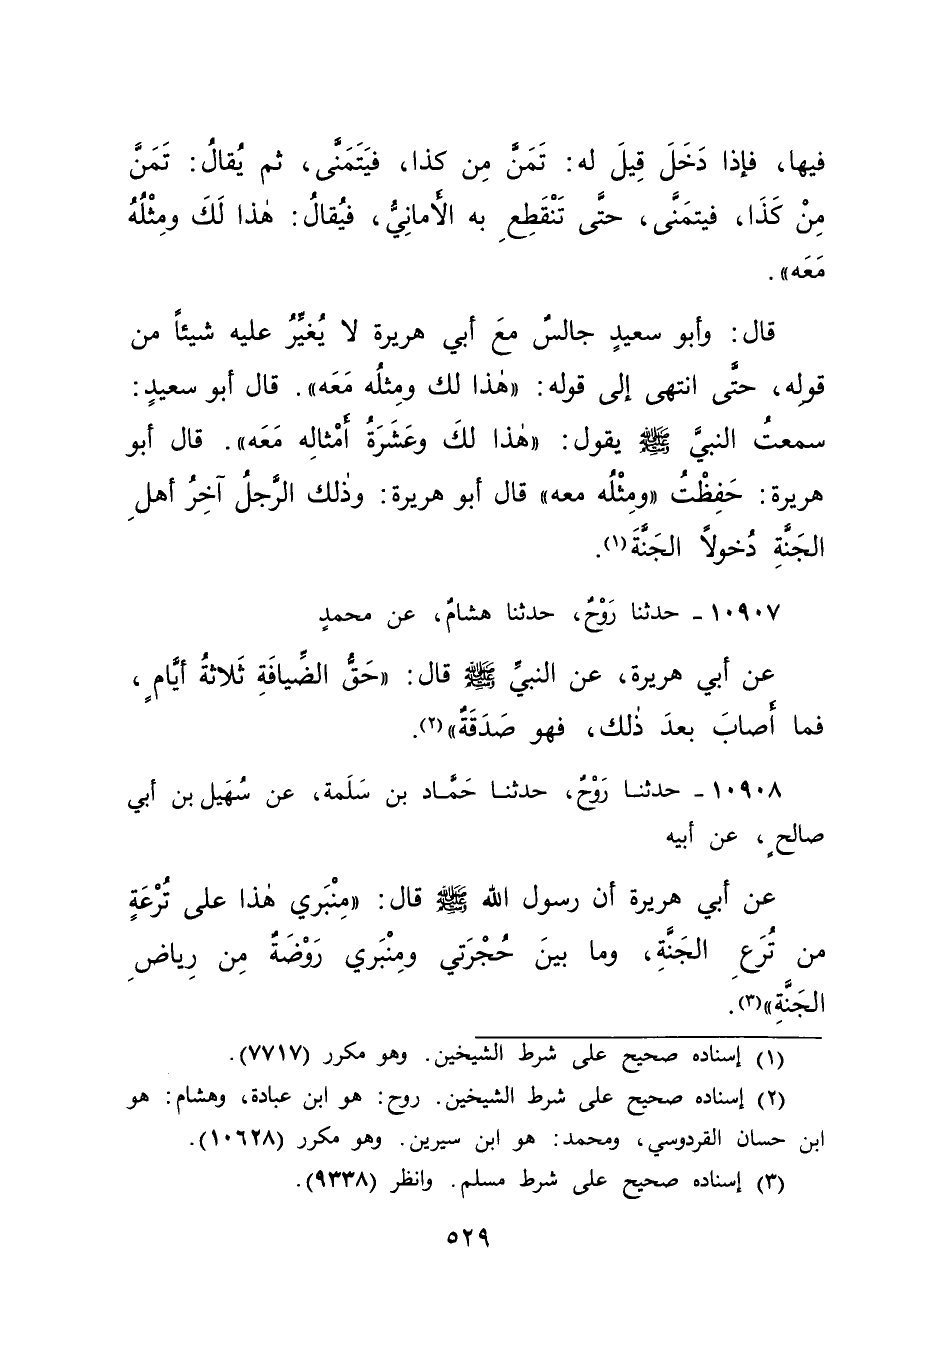 فيها، فإذا دَخَلَ قِيلَ له: تَمَنَّ مِن كذا، فيَتَمَنَّى، ثم يُقالُ: تَمَنَّ
مِنْ كَذَا، فيتمَنَّى، حتَّى تَنْقَطِعِ به الأَمانِيُّ، فيُقالُ: هٰذا لَكَ ومِثْلُهُ
مَعَه».
قال: وأبو سعيدٍ جالسٌ معَ أبي هريرة لا يُغيِّرُ عليه شيئاً من
قولِه، حتَّى انتهى إلى قوله: «هٰذا لك ومِثلُه مَعَه». قال أبو سعيدٍ:
سمعتُ النبيَّ ﷺ يقول: «هٰذا لكَ وعَشَرَةُ أَمْثالِه مَعَه». قال أبو
هريرة: حَفِظْتُ «ومِثْلُه معه» قال أبو هريرة: وذٰلك الرَّجلُ آخِرُ أهلِ
الجَنَّةِ دُخولاً الجَنَّةَ(١).
١٠٩٠٧ - حدثنا رَوْحٌ، حدثنا هشامٌ، عن محمدٍ
عن أبي هريرة، عن النبيِّ ﷺ قال: «حَقُّ الضِّيافَةِ ثَلاثةُ أيَّامٍ،
فما أَصابَ بعدَ ذٰلك، فهو صَدَقَةٌ»(٢).
١٠٩٠٨ - حدثنا رَوْحٌ، حدثنا حَمَّاد بن سَلَمة، عن سُهَيل بن أبي
صالحٍ، عن أبيه
عن أبي هريرة أن رسول الله ﷺ قال: «مِنْبَري هٰذا على تُرْعَةٍ
من تُرَعِ الجَنَّةِ، وما بينَ حُجْرَتي ومِنْبَري رَوْضَةٌ مِن رِياضِ
الجَنَّةِ»(٣).
(١) إسناده صحيح على شرط الشيخين. وهو مكرر (٧٧١٧).
(٢) إسناده صحيح على شرط الشيخين. روح: هو ابن عبادة، وهشام: هو
ابن حسان القردوسي، ومحمد: هو ابن سيرين. وهو مكرر (١٠٦٢٨).
(٣) إسناده صحيح على شرط مسلم. وانظر (٩٣٣٨).
٥٢٩